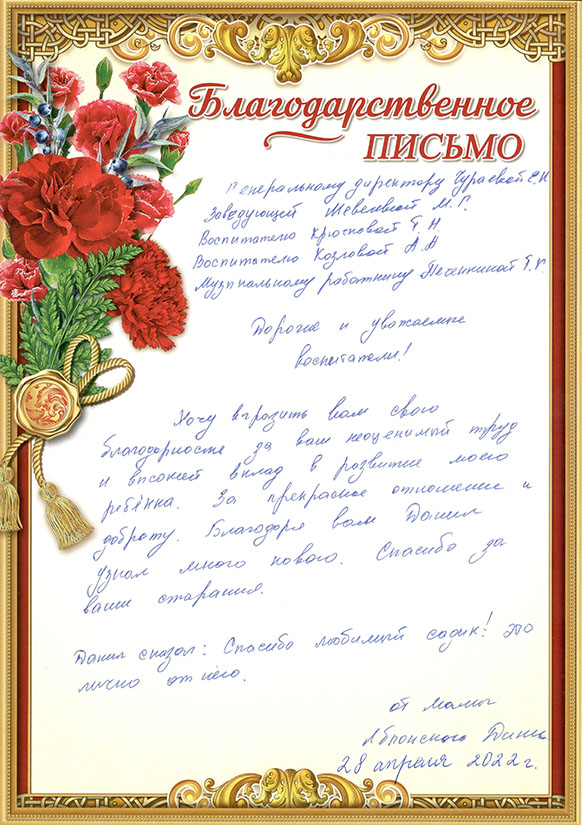 Благодарственное
ПИСЬМО
Генеральному директору Чураевой Е.Н
Заведующей М. Г.
Воспитателю Т. Н.
Воспитателю Козловой А. А
Музыкальному работнику Песенкиной Т. Г.
Дорогие и уважаемые
воспитатели!
Хочу выразить вам свою
благодарность за ваш неоценимый труд
и высокий вклад в развитие моего
ребёнка. За прекрасное отношение и
доброту. Благодаря вам Данил
узнал много нового. Спасибо за
ваши старания.
Данил сказал: Спасибо любимый садик! Это
лично от него.
от мамы
28 апреля 2022г.